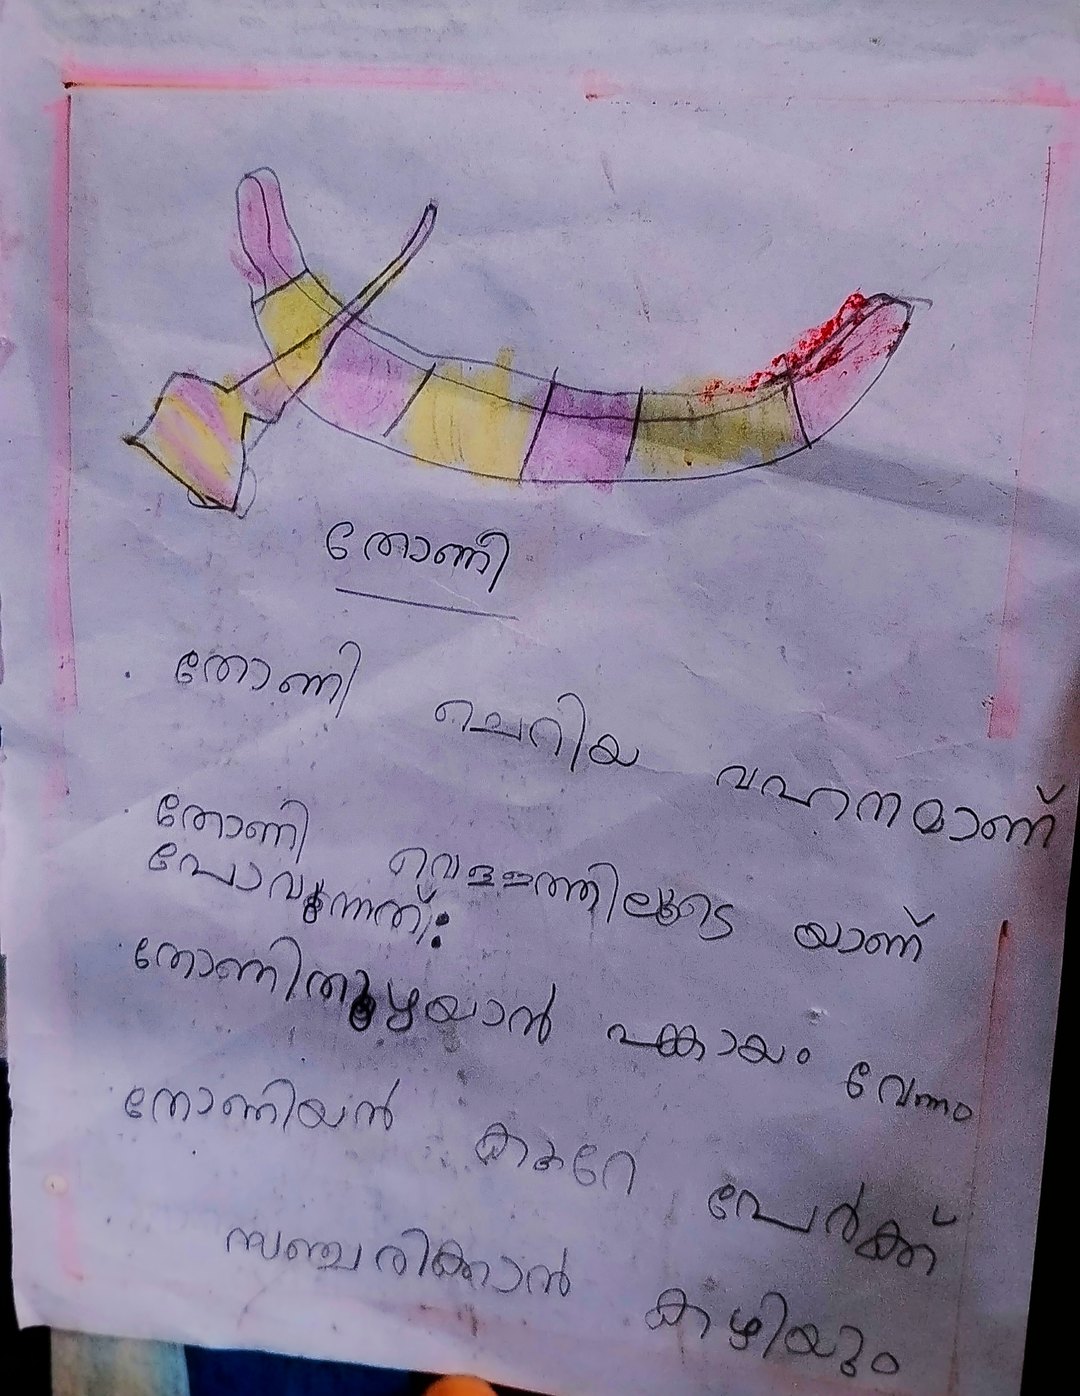 തോണി
തോണി ചെറിയ വഹനമാണ്
തോണി വെള്ളത്തിലൂടെ യാണ്
പോവുന്നത്.
തോണിതുഴയാൻ പങ്കായം വേന്നം
തോണിയൻ കുറേ പേർക്ക്
സഞ്ചരിക്കാൻ കഴിയും